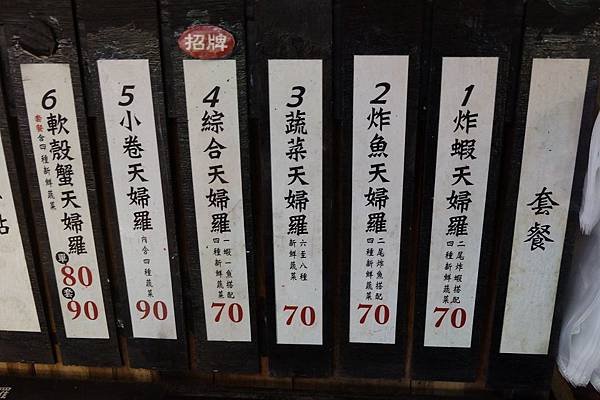 套餐
1
炸蝦天婦羅
二尾炸蝦搭配
四種新鮮蔬菜
70
2
炸魚天婦羅
二尾炸魚搭配
四種新鮮蔬菜
70
3
蔬菜天婦羅
六至八種
新鮮蔬菜
70
招牌
4
綜合天婦羅
一蝦一魚搭配
四種新鮮蔬菜
70
5
小卷天婦羅
內含四種蔬菜
90
6
軟殼蟹天婦羅
套餐含四種新鮮蔬菜
單80
套90